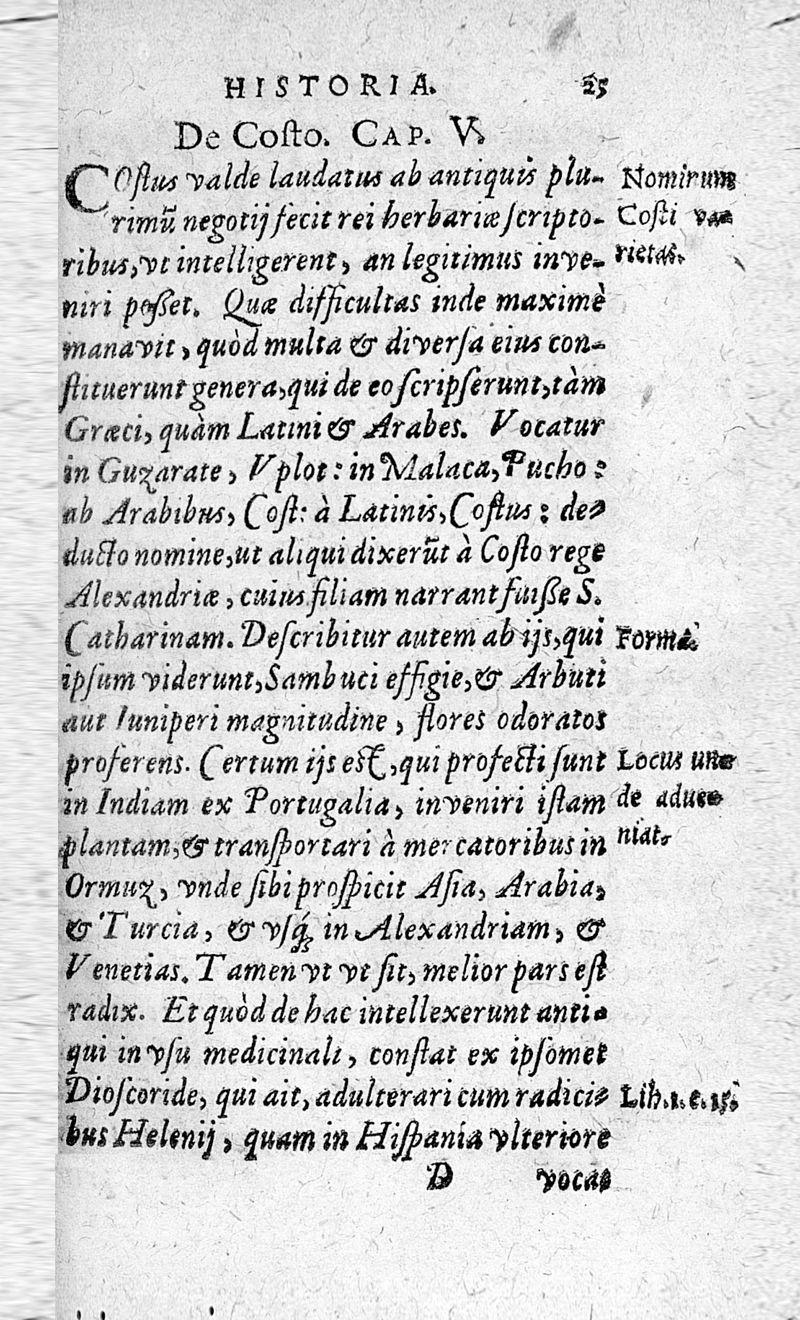 HISTORIA. 25
De Costo. CAP. V.
COſtus valde laudatus ab antiquis plu-
rimũ negotij fecit rei herbariæ ſcripto-
ribus, vt intelligerent, an legitimus inve-
niri poſſet. Quæ difficultas inde maximè
manavit, quòd multa & diverſa eius con-
ſtituerunt genera, qui de eo ſcripſerunt, tàm
Græci, quàm Latini & Arabes. Vocatur
in Guzarate, Vplot: in Malaca, Pucho:
ab Arabibus, Coſt: à Latinis, Coſtus: de-
ducto nomine, ut aliqui dixerũt à Coſto rege
Alexandriæ, cuius filiam narrant fuiſſe S.
Catharinam. Deſcribitur autem ab ijs, qui
ipſum viderunt, Sambuci effigie, & Arbuti
aut Iuniperi magnitudine, flores odoratos
proferens. Certum ijs est, qui profecti ſunt
in Indiam ex Portugalia, inveniri iſtam
plantam, & tranſportari à mercatoribus in
Ormuz, vnde ſibi proſpicit Aſia, Arabia,
& Turcia, & vſq́; in Alexandriam, &
Venetias. Tamen vt vt ſit, melior pars eſt
radix. Et quòd de hac intellexerunt anti-
qui in vſu medicinali, conſtat ex ipſomet
Dioſcoride, qui ait, adulterari cum radici-
bus Helenij, quam in Hiſpania vlteriore
D vocas
Nominum
Coſti va-
rietas.
Forma.
Locus un-
de adve-
niat.
Lib. 1. c. 15.